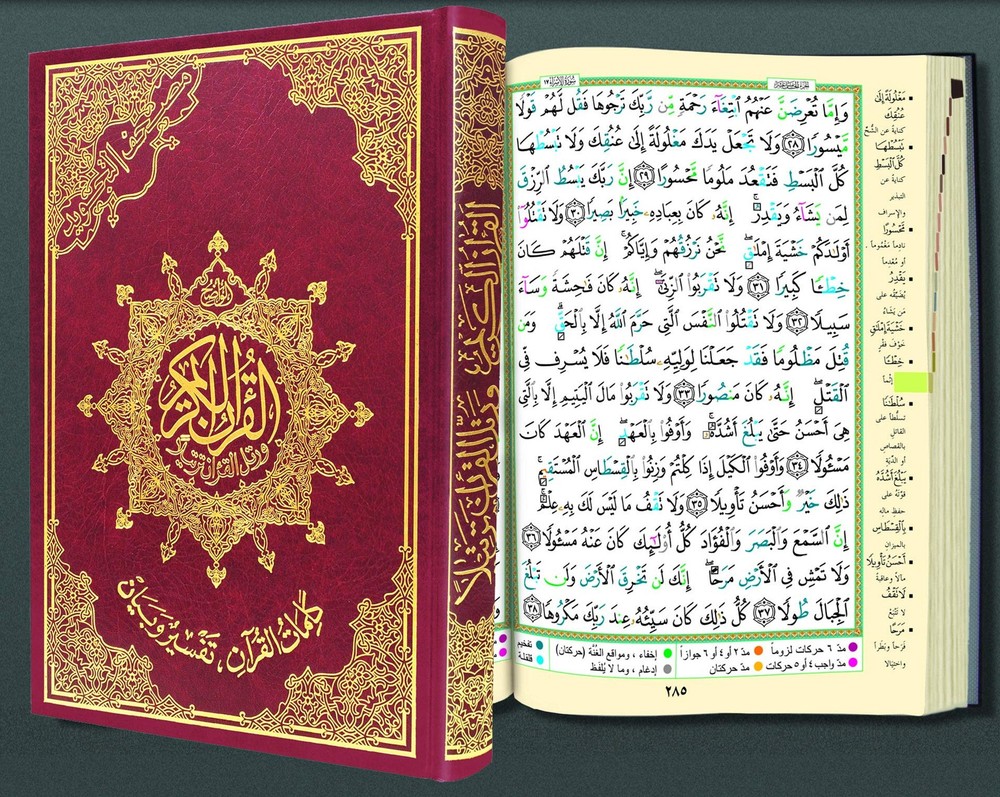 مصحف التجويد
الواضح
القرآن الكريم
ورتل القرآن ترتيلا
كلمات القرآن، تفسير وبيان
القرآن الكريم ورتل القرآن ترتيلاً
سورة الإسراء ١٧
وَإِمَّا تُعْرِضَنَّ عَنْهُمُ ٱبْتِغَآءَ رَحْمَةٍ مِّن رَّبِّكَ تَرْجُوهَا فَقُل لَّهُمْ قَوْلًا
مَّيْسُورًا ٢٨ وَلَا تَجْعَلْ يَدَكَ مَغْلُولَةً إِلَىٰ عُنُقِكَ وَلَا تَبْسُطْهَا
كُلَّ ٱلْبَسْطِ فَتَقْعُدَ مَلُومًا مَّحْسُورًا ٢٩ إِنَّ رَبَّكَ يَبْسُطُ ٱلرِّزْقَ
لِمَن يَشَآءُ وَيَقْدِرُ ۚ إِنَّهُۥ كَانَ بِعِبَادِهِۦ خَبِيرًۢا بَصِيرًا ٣٠ وَلَا تَقْتُلُوٓا۟
أَوْلَٰدَكُمْ خَشْيَةَ إِمْلَٰقٍ ۖ نَّحْنُ نَرْزُقُهُمْ وَإِيَّاكُمْ ۚ إِنَّ قَتْلَهُمْ كَانَ
خِطْـًٔا كَبِيرًا ٣١ وَلَا تَقْرَبُوا۟ ٱلزِّنَىٰٓ ۖ إِنَّهُۥ كَانَ فَٰحِشَةً وَسَآءَ
سَبِيلًا ٣٢ وَلَا تَقْتُلُوا۟ ٱلنَّفْسَ ٱلَّتِى حَرَّمَ ٱللَّهُ إِلَّا بِٱلْحَقِّ ۗ وَمَن
قُتِلَ مَظْلُومًا فَقَدْ جَعَلْنَا لِوَلِيِّهِۦ سُلْطَٰنًا فَلَا يُسْرِف فِّى
ٱلْقَتْلِ ۖ إِنَّهُۥ كَانَ مَنصُورًا ٣٣ وَلَا تَقْرَبُوا۟ مَالَ ٱلْيَتِيمِ إِلَّا بِٱلَّتِى
هِىَ أَحْسَنُ حَتَّىٰ يَبْلُغَ أَشُدَّهُۥ ۚ وَأَوْفُوا۟ بِٱلْعَهْدِ ۖ إِنَّ ٱلْعَهْدَ كَانَ
مَسْـُٔولًا ٣٤ وَأَوْفُوا۟ ٱلْكَيْلَ إِذَا كِلْتُمْ وَزِنُوا۟ بِٱلْقِسْطَاسِ ٱلْمُسْتَقِيمِ ۚ
ذَٰلِكَ خَيْرٌ وَأَحْسَنُ تَأْوِيلًا ٣٥ وَلَا تَقْفُ مَا لَيْسَ لَكَ بِهِۦ عِلْمٌ ۚ
إِنَّ ٱلسَّمْعَ وَٱلْبَصَرَ وَٱلْفُؤَادَ كُلُّ أُو۟لَٰٓئِكَ كَانَ عَنْهُ مَسْـُٔولًا ٣٦
وَلَا تَمْشِ فِى ٱلْأَرْضِ مَرَحًا ۖ إِنَّكَ لَن تَخْرِقَ ٱلْأَرْضَ وَلَن تَبْلُغَ
ٱلْجِبَالَ طُولًا ٣٧ كُلُّ ذَٰلِكَ كَانَ سَيِّئُهُۥ عِندَ رَبِّكَ مَكْرُوهًا ٣٨
مَغْلُولَةً إِلَىٰ
عُنُقِكَ
كناية عن الشُّحّ
تَبْسُطْهَا
كُلَّ ٱلْبَسْطِ
كناية عن
التبذير
والإسراف
مَّحْسُورًا
نادماً مغموماً
أو مُعْدِماً
يَقْدِرُ
يُضَيِّقُه على
مَن يشاءُ
خَشْيَةَ إِمْلَٰقٍ
خَوْفَ فَقْرٍ
خِطْـًٔا
إثماً
سُلْطَٰنًا
تسلُّطاً على
القاتل
بالقصاصِ
أو الدِّيَة
يَبْلُغَ أَشُدَّهُ
قوَّتَهُ على
حفظِ ماله
بِٱلْقِسْطَاسِ
بالميزانِ
أَحْسَنُ تَأْوِيلًا
مآلاً وعاقبةً
لَا تَقْفُ
لا تَتَّبِعْ
مَرَحًا
فَرَحاً وبَطَراً
واختيالاً
مدّ ٦ حركات لزوماً مدّ ٢ أو ٤ أو ٦ جوازاً إخفاء، ومواقع الغُنَّة (حركتان) تفخيم
مدّ واجب ٤ أو ٥ حركات مدّ حركتان إدغام، وما لا يُلفَظ قلقلة
٢٨٥